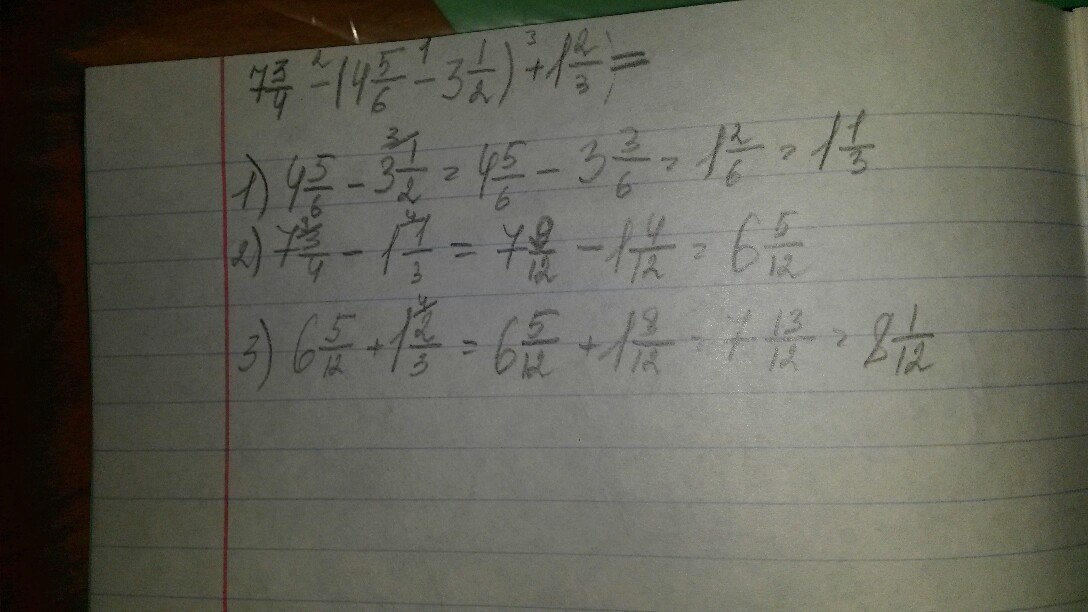 7 3/4 -² (4 5/6 -¹ 3 1/2) +³ 1 2/3 =
1) 4 5/6 - 3 1/2 ³ = 4 5/6 - 3 3/6 = 1 2/6 = 1 1/3
2) 7 3/4 ³ - 1 1/3 ⁴ = 7 9/12 - 1 4/12 = 6 5/12
3) 6 5/12 + 1 2/3 ⁴ = 6 5/12 + 1 8/12 = 7 13/12 = 8 1/12